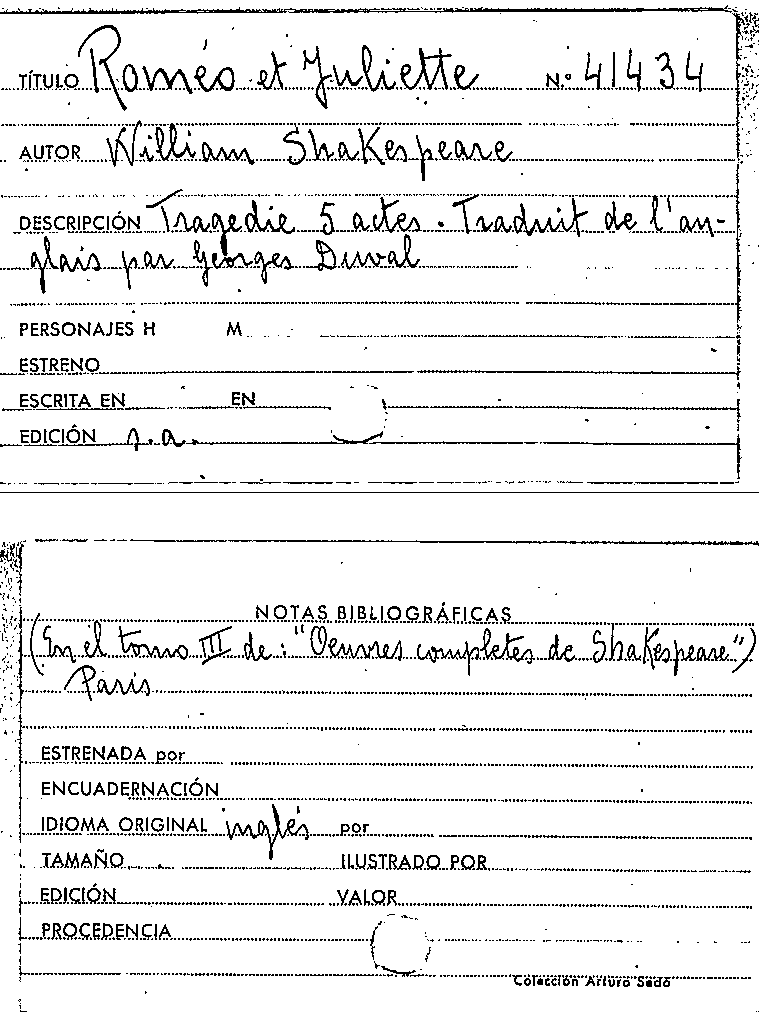 TÍTULO Roméo et Juliette N.º 41434
AUTOR William Shakespeare
DESCRIPCIÓN Tragedie 5 actes. Traduit de l'an-
glais par Georges Duval
PERSONAJES H M
ESTRENO
ESCRITA EN EN
EDICIÓN s.a.
NOTAS BIBLIOGRÁFICAS
(En el tomo III de: "Oeuvres completes de Shakespeare")
Paris
ESTRENADA por
ENCUADERNACIÓN
IDIOMA ORIGINAL inglés por
TAMAÑO ILUSTRADO POR
EDICIÓN VALOR
PROCEDENCIA
Colección Arturo Sedó